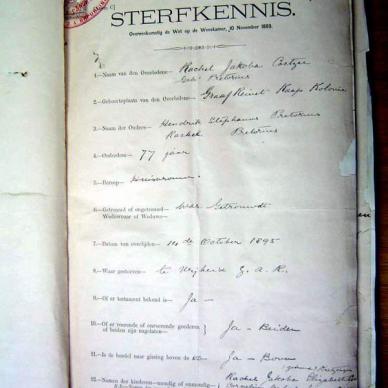 STERFKENNIS.
Overeenkomstig de Wet op de Weeskamer, 10 November 1869.
1.—Naam van den Overledene— Rachel Jakoba Coetzer
Geb: Pretorius
2.—Geboorteplaats van den Overledene— Graaf Reinet Kaap Kolonie
3.—Naam der Ouders— Hendrik Stephanus Pretorius
Rachel Pretorius
4.—Ouderdom— 77 jaar
5.—Beroep— Huisvrouw
6.—Getrouwd of ongetrouwd
Weduwnaar of Weduwe— Getrouwd
7.—Datum van overlijden— 14 de October 1895
8.—Waar gestorven— te Vrijheid Z. A. R.
9.—Of er testament bekend is— Ja —
10.—Of er roerende of onroerende goederen
of beiden zijn nagelaten— Ja — Beiden
11.—Is de boedel naar gissing boven de — Ja — Boven
12.—Namen der kinderen—mondig of onmondig—
Rachel Jakoba Elizabeth